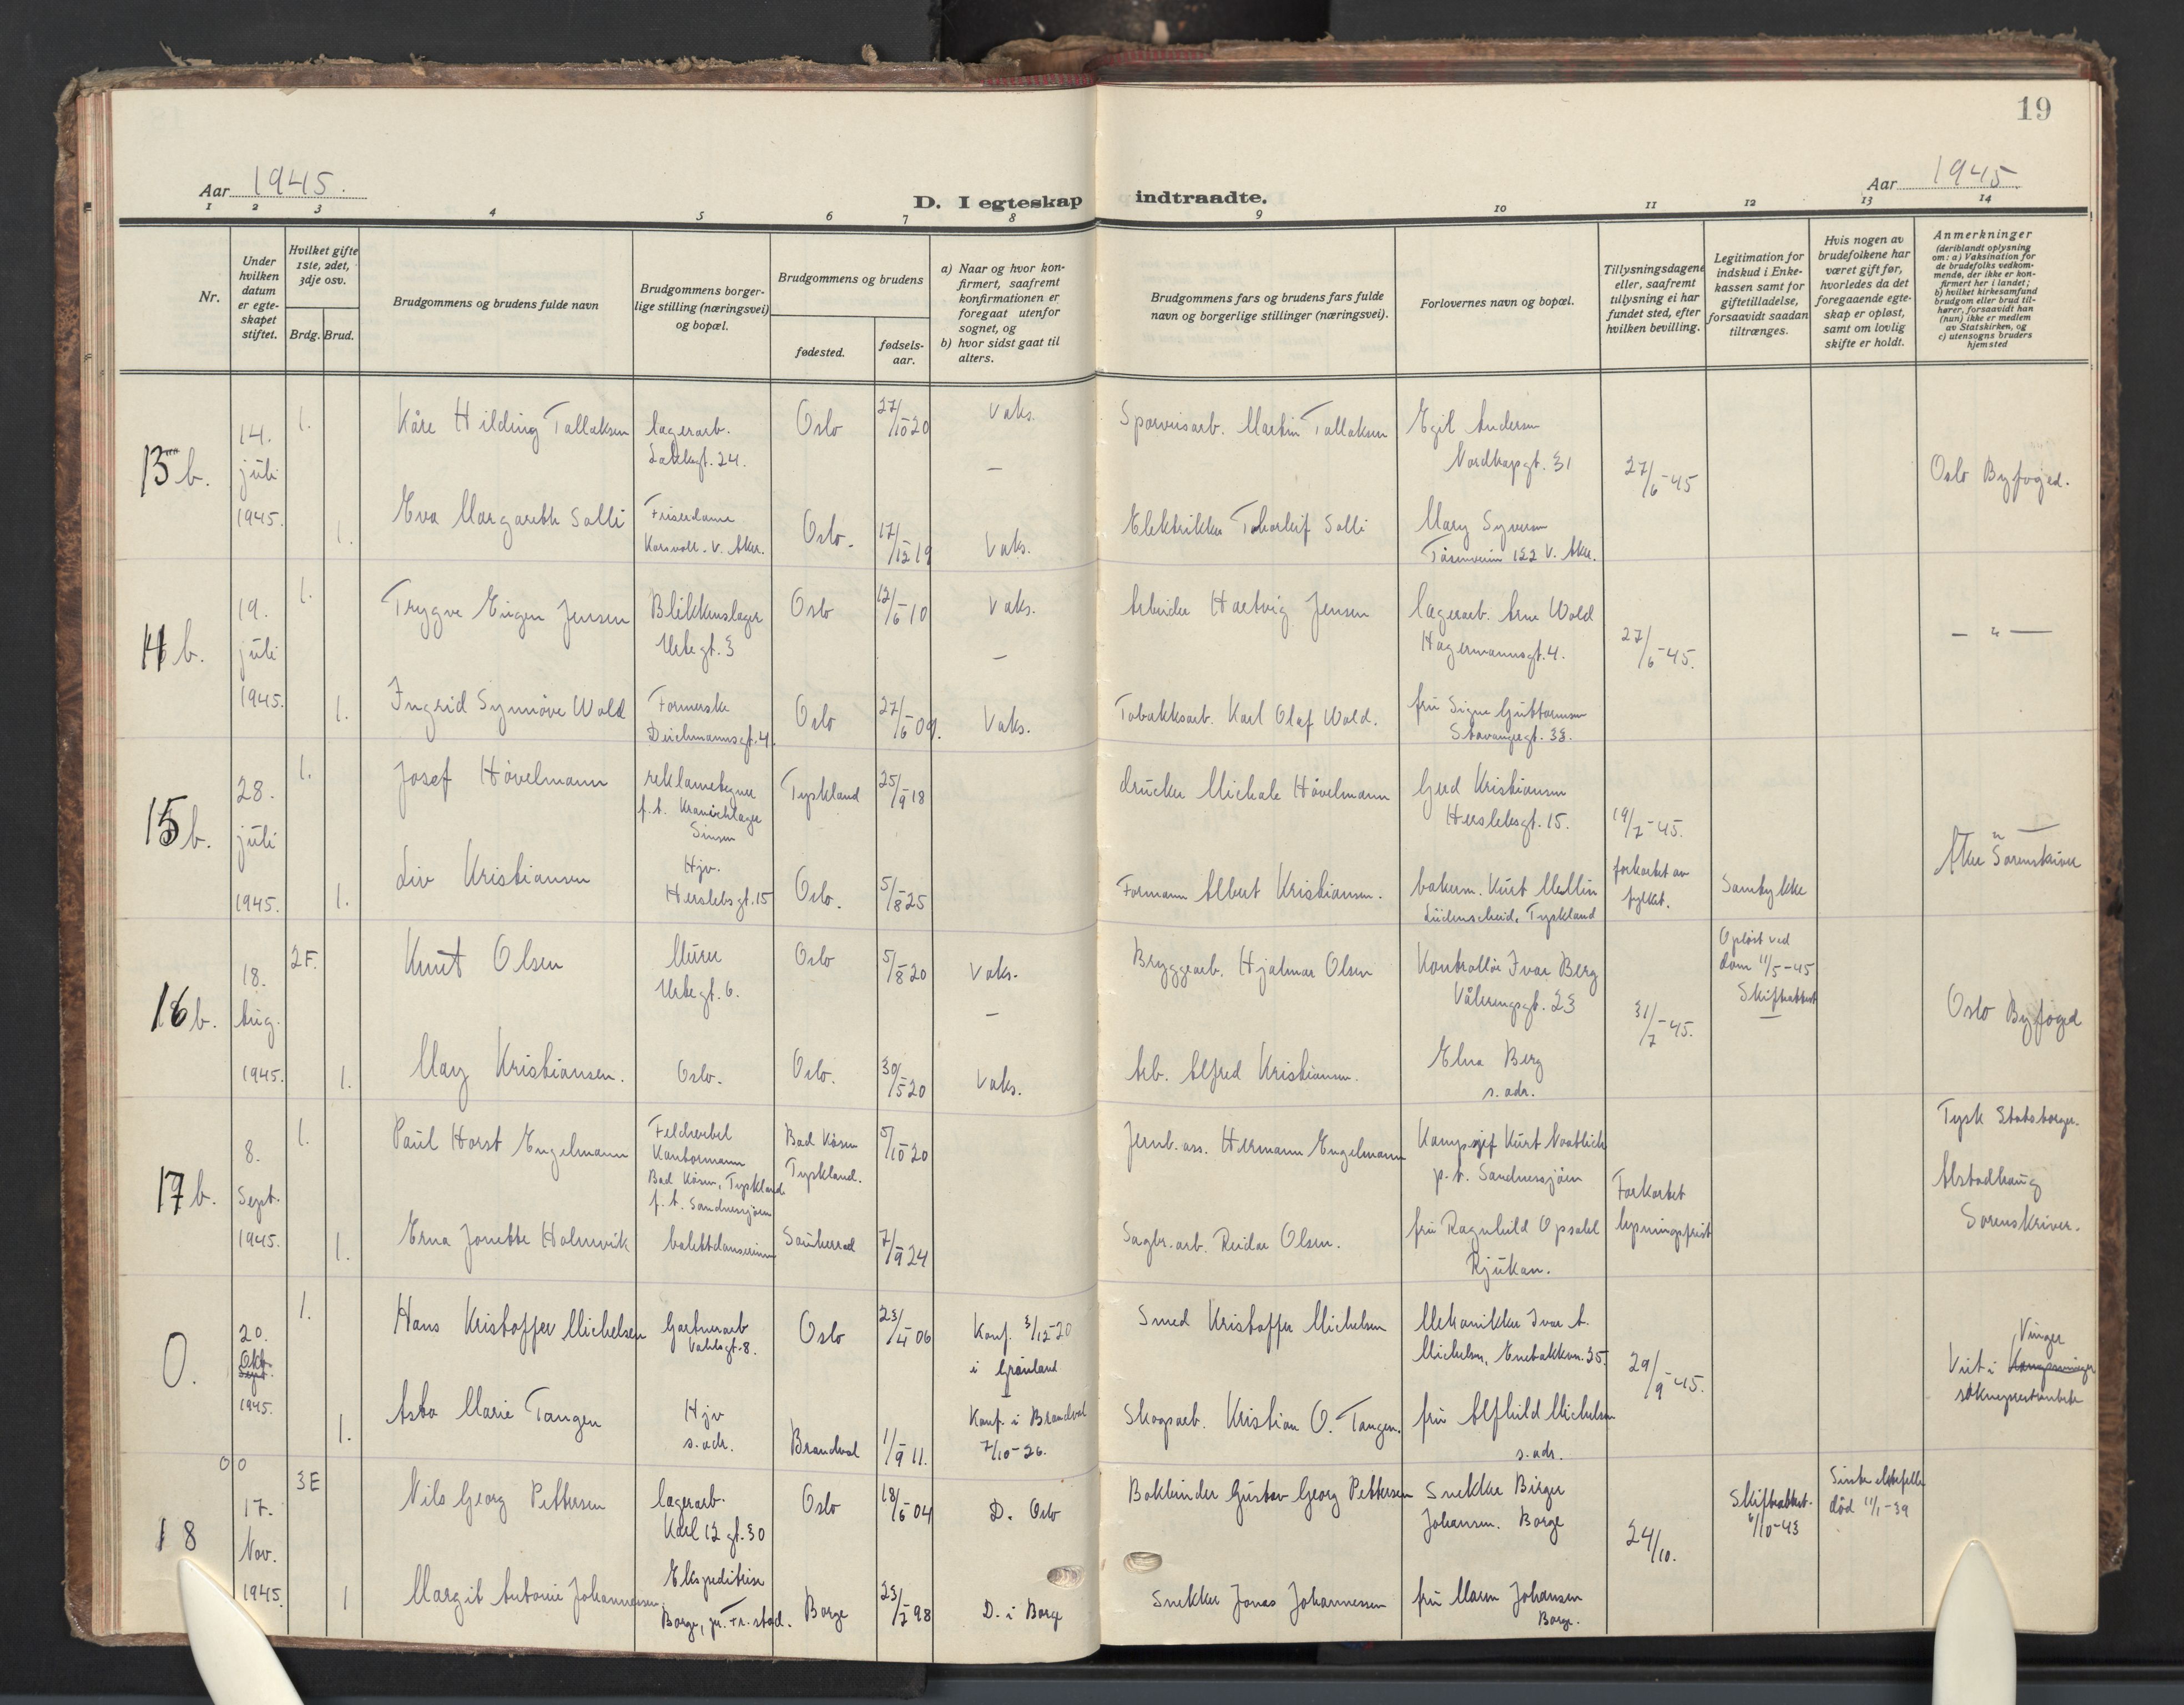 19
Aar 1945.
D. I egteskap indtraadte.
Aar 1945
1 2 3 4 5 6 7 8 9 10 11 12 13 14
Nr.
Under hvilken datum er egteskapet stiftet.
Hvilket gifte 1ste, 2det, 3dje osv.
Brdg. Brud.
Brudgommens og brudens fulde navn
Brudgommens borgerlige stilling (næringsvei) og bopæl.
Brudgommens og brudens
fødested.
fødselsaar.
a) Naar og hvor konfirmert, saafremt konfirmationen er foregaat utenfor sognet, og
b) hvor sidst gaat til alters.
Brudgommens fars og brudens fars fulde navn og borgerlige stillinger (næringsvei).
Forlovernes navn og bopæl.
Tillysningsdagene eller, saafremt tillysning ei har fundet sted, efter hvilken bevilling.
Legitimation for indskud i Enkekassen samt for giftetilladelse, forsaavidt saadan tiltrænges.
Hvis nogen av brudefolkene har været gift før, hvorledes da det foregaaende egteskap er opløst, samt om lovlig skifte er holdt.
Anmerkninger (deriblandt oplysning om: a) Vaksination for de brudefolks vedkommende, der ikke er konfirmert her i landet; b) hvilket kirkesamfund brudgom eller brud tilhører, forsaavidt han (hun) ikke er medlem av Statskirken, og c) utensogns bruders hjemsted
13 b.
14. juli 1945.
1. Kåre Hilding Tallaksen lagerarb. Oslo 27/10-20 Vaks. Sporveisarb. Martin Tallaksen Egil Andersen
Nordkapgt. 31 27/6-45 Oslo Byfoged.
1. Eva Margarethe Solli Friserdame Oslo. 17/12-19 Vaks. Elektriker Thorleif Solli Mary Syversen
Korsvoll. V. Aker. Tåsenveien 122 V. Aker.
14 b.
19. juli 1945.
1. Trygve Eugen Jensen Blikkenslager Oslo 12/6-10 Vaks. Arbeider Hartvig Jensen lagerarb. Arne Wold
Urtegt. 3 Hagermannsgt. 4. 27/6-45. — " —
1. Ingrid Synnøve Wold Formerske Oslo 27/6-09. Vaks. Tobakksarb. Karl Olaf Wold. fru Signe Guttormsen
Deichmannsgt. 4. Stavangergt. 33.
15 b.
28. juli 1945.
1. Josef Hövelmann reklametegner Tyskland 25/9-18 drucker Michale Hövelmann Gerd Kristiansen
f.t. Kranichlager Herslebsgt. 15. 19/7-45.
Sinsen
1. Liv Kristiansen Hjv. Oslo. 5/8-25 Formann Albert Kristiansen. bakerm. Kurt Mellin forkortet av fylket. Samtykke Aker Sorenskriver
Herslebsgt. 15 Lüdenscheid, Tyskland
16 b.
18. Aug. 1945.
2F. Knut Olsen Murer Oslo 5/8-20 Vaks. Bryggearb. Hjalmar Olsen Kontrollør Ivar Berg Opløst ved dom 11/5-45
Urtegt. 6. Vålerengsgt. 23 31/7-45. Skifteattest Oslo Byfoged
1. May Kristiansen. Oslo. Oslo. 30/5-20 Vaks. Arb. Alfred Kristiansen. Elna Berg
s. adr.
17 b.
8. Sept. 1945.
1. Paul Horst Engelmann Feldwebel Bad Kösen 5/10-20 Jernb. ass. Hermann Engelmann Kampsjef Kurt Tysk Statsborger.
Kontormann Tyskland. p.t. Sandnessjøen
Bad Kösen, Tyskland
f.t. Sandnessjøen
Forkortet lysningsfrist Alstadhaug Sorenskriver.
1. Erna Jonette Holmvik balettdanserinne Sauherad 7/9-24 Sagbr.arb. Reidar Olsen. fru Ragnhild Opsahl
Rjukan.
O.
20. Okt. 1945.
1. Hans Kristoffer Michelsen Gartnerarb Oslo 23/4-06 Konf. 3/12-20 Smed Kristoffer Michelsen Mekaniker Ivar A.
Vahlsgt. 8. i Grønland Michelsen, Enebakkvn. 35. 29/9-45. Viet i Vinger
sokneprestembete
1. Asta Marie Tangen Hjv Brandval 1/9-11. Konf. i Brandval Skogsarb. Kristian O. Tangen. fru Alfhild Michelsen
s. adr. 7/10-26. s. adr.
00
18
17. Nov. 1945.
3E Nils Georg Pettersen lagerarb. Oslo 18/6-04 D. Oslo Bokbinder Gustav Georg Pettersen Snekker Birger Skifteattest. 6/10-43 Siste ektefelle død 11/1-39
Karl 12 gt. 30 Johansen. Borge 24/10.
1 Margit Antonie Johannessen. Ekspeditrise Borge 23/7-98 D. i Borge Snekker Jonas Johannessen fru Maren Johansen
Borge, pr. Fr.stad. Borge.